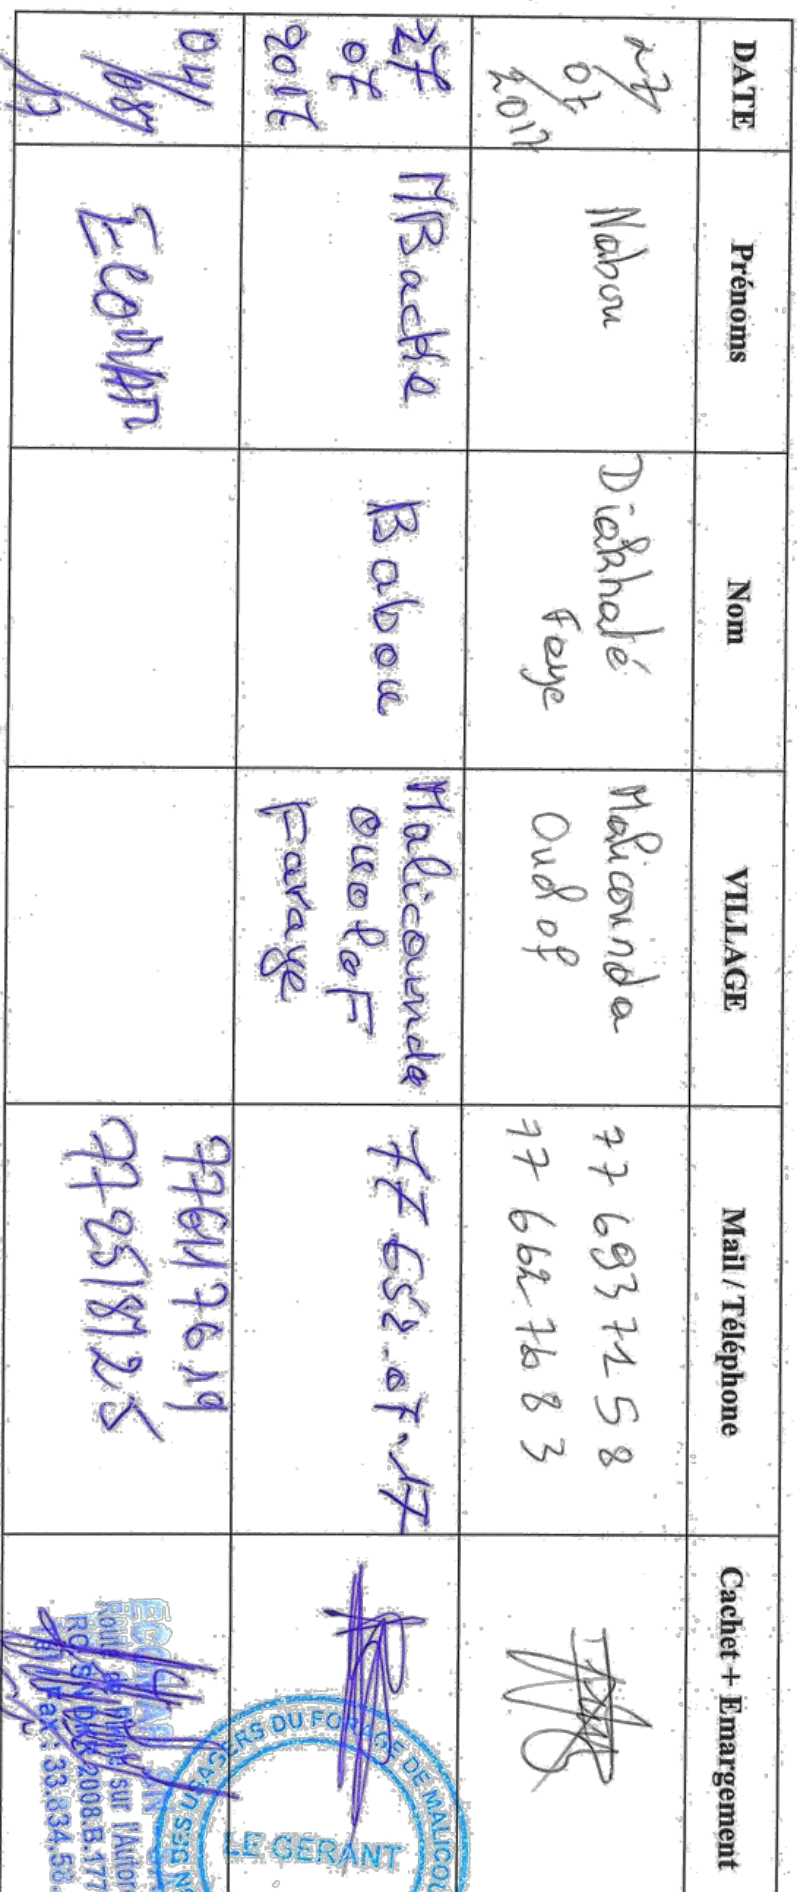 DATE
Prénoms
Nom
VILLAGE
Mail / Téléphone
Cachet + Emargement
27/
07/
2017
Nabou
Diakhaté
Faye
Malicounda
Oudof
77 693 71 58
77 662 76 83
27
07
2017
MBacke
Babou
Malicounda
Ouolof
Faraye
77 652.07.17
USAGERS DU FORAGE DE MALICOU
LE GERANT
04/
08/
17
77611 76 19
77 251 81 25
sur l'Autor
2008.B.177
Fax : 33.834.58.